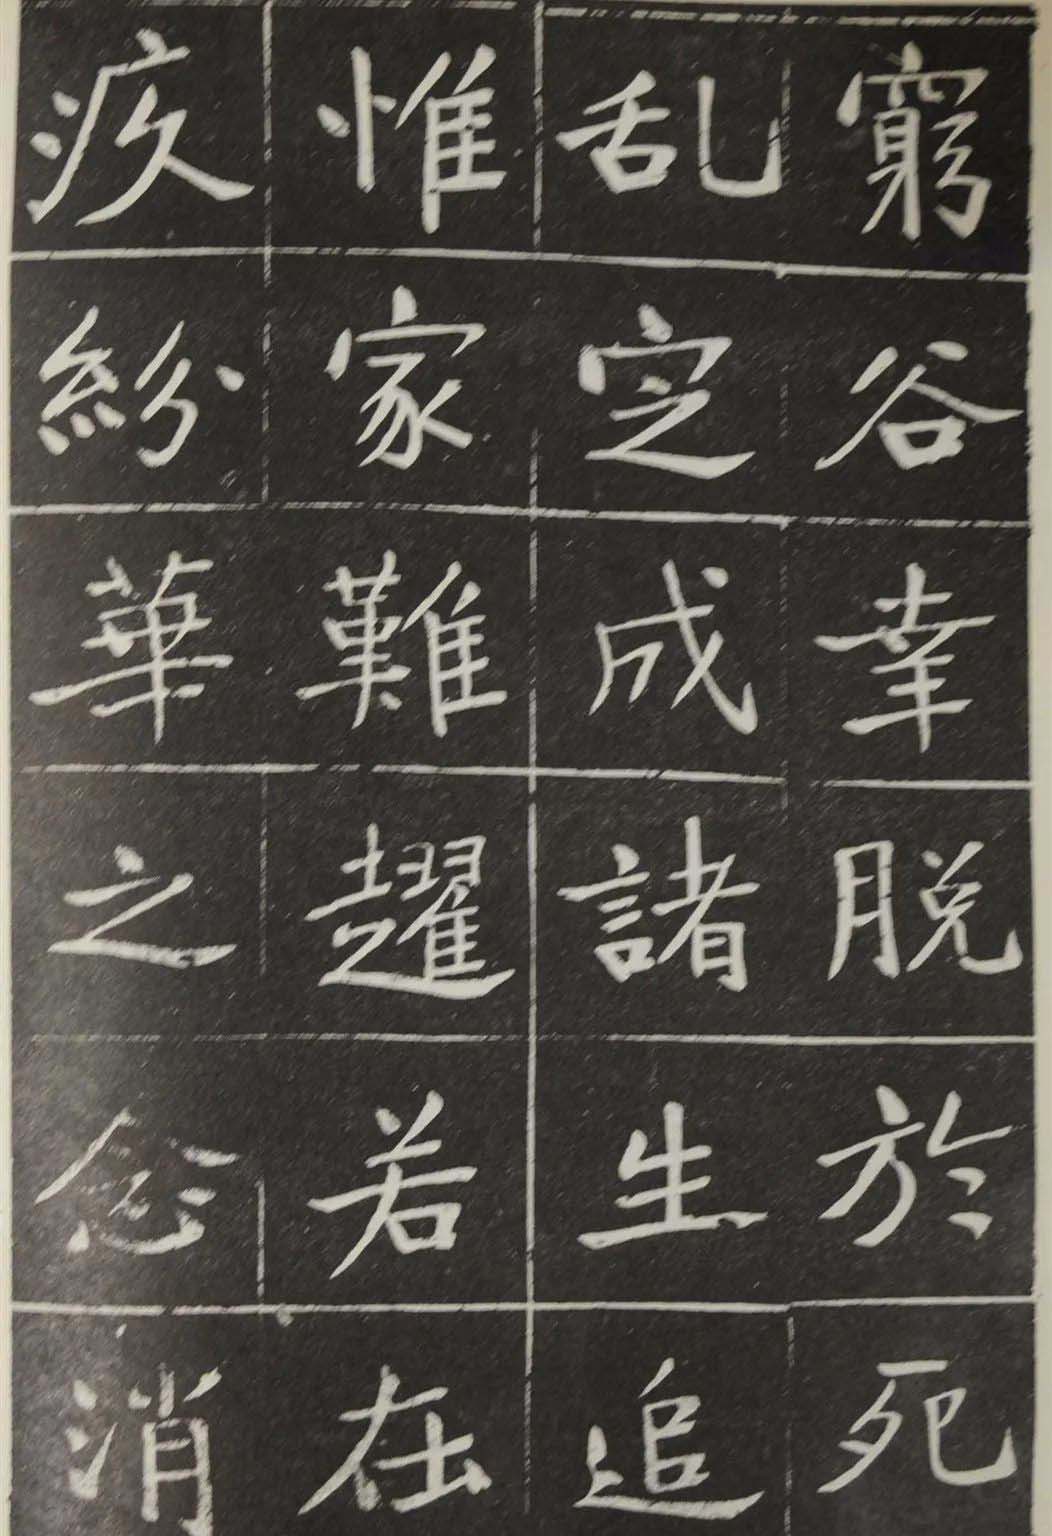 窮谷幸脱於死
乱定成諸生追
惟家難趯若在
疚紛華之念消